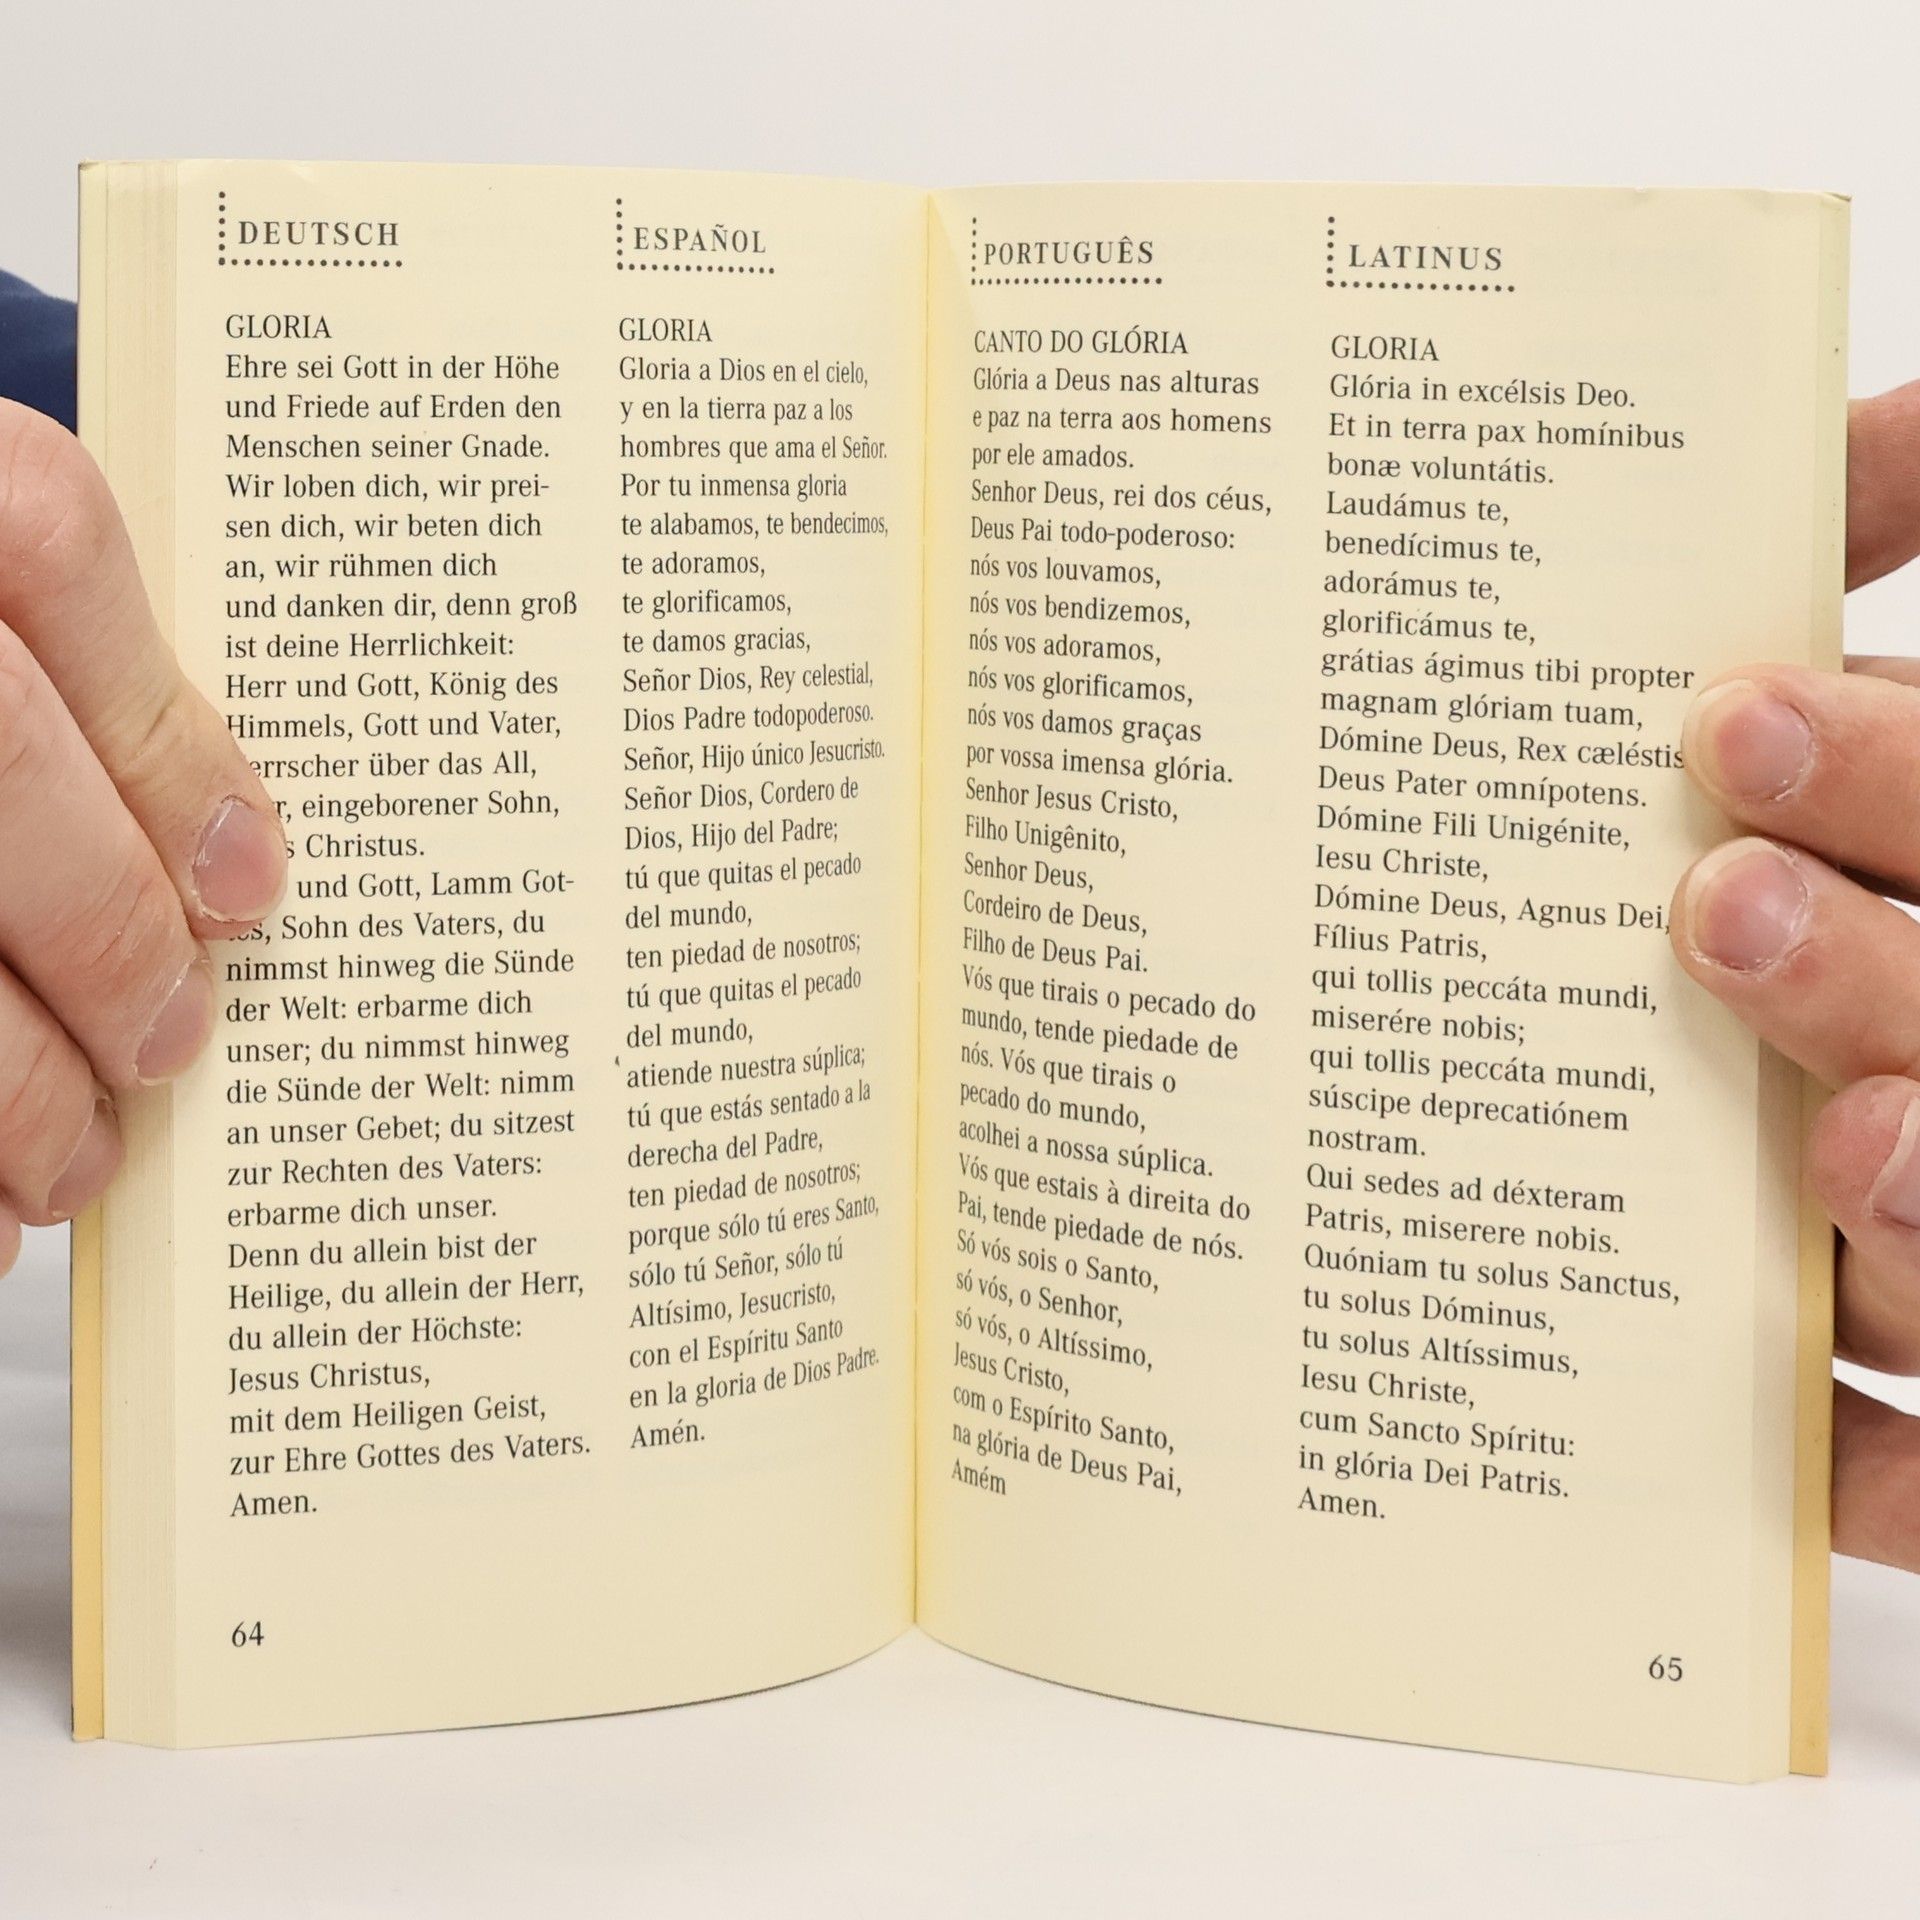 DEUTSCH
GLORIA
Ehre sei Gott in der Höhe
und Friede auf Erden den
Menschen seiner Gnade.
Wir loben dich, wir prei-
sen dich, wir beten dich
an, wir rühmen dich
und danken dir, denn groß
ist deine Herrlichkeit:
Herr und Gott, König des
Himmels, Gott und Vater,
über das All,
eingeborener Sohn,
Christus.
und Gott, Lamm Got-
Sohn des Vaters, du
nimmst hinweg die Sünde
der Welt: erbarme dich
unser; du nimmst hinweg
die Sünde der Welt: nimm
an unser Gebet; du sitzest
zur Rechten des Vaters:
erbarme dich unser.
Denn du allein bist der
Heilige, du allein der Herr,
du allein der Höchste:
Jesus Christus,
mit dem Heiligen Geist,
zur Ehre Gottes des Vaters.
Amen.
64
ESPAÑOL
GLORIA
Gloria a Dios en el cielo,
y en la tierra paz a los
hombres que ama el Señor.
Por tu inmensa gloria
te alabamos, te bendecimos,
te adoramos,
te glorificamos,
te damos gracias,
Señor Dios, Rey celestial,
Dios Padre todopoderoso.
Señor, Hijo único Jesucristo.
Señor Dios, Cordero de
Dios, Hijo del Padre;
tú que quitas el pecado
del mundo,
ten piedad de nosotros;
tú que quitas el pecado
del mundo,
atiende nuestra súplica;
tú que estás sentado a la
derecha del Padre,
ten piedad de nosotros;
porque sólo tú eres Santo,
sólo tú Señor, sólo tú
Altísimo, Jesucristo,
con el Espíritu Santo
en la gloria de Dios Padre.
Amén.
PORTUGUÊS
CANTO DO GLÓRIA
Glória a Deus nas alturas
e paz na terra aos homens
por ele amados.
Senhor Deus, rei dos céus,
Deus Pai todo-poderoso:
nós vos louvamos,
nós vos bendizemos,
nós vos adoramos,
nós vos glorificamos,
nós vos damos graças
por vossa imensa glória.
Senhor Jesus Cristo,
Filho Unigênito,
Senhor Deus,
Cordeiro de Deus,
Filho de Deus Pai.
Vós que tirais o pecado do
mundo, tende piedade de
nós. Vós que tirais o
pecado do mundo,
acolhei a nossa súplica.
Vós que estais à direita do
Pai, tende piedade de nós.
Só vós sois o Santo,
só vós, o Senhor,
só vós, o Altíssimo,
Jesus Cristo,
com o Espírito Santo,
na glória de Deus Pai,
Amém
LATINUS
GLORIA
Glória in excélsis Deo.
Et in terra pax homínibus
bonæ voluntátis.
Laudámus te,
benedícimus te,
adorámus te,
glorificámus te,
grátias ágimus tibi propter
magnam glóriam tuam,
Dómine Deus, Rex cæléstis
Deus Pater omnípotens.
Dómine Fili Unigénite,
Iesu Christe,
Dómine Deus, Agnus Dei,
Fílius Patris,
qui tollis peccáta mundi,
miserére nobis;
qui tollis peccáta mundi,
súscipe deprecatiónem
nostram.
Qui sedes ad déxteram
Patris, miserere nobis.
Quóniam tu solus Sanctus,
tu solus Dóminus,
tu solus Altíssimus,
Iesu Christe,
cum Sancto Spíritu:
in glória Dei Patris.
Amen.
65